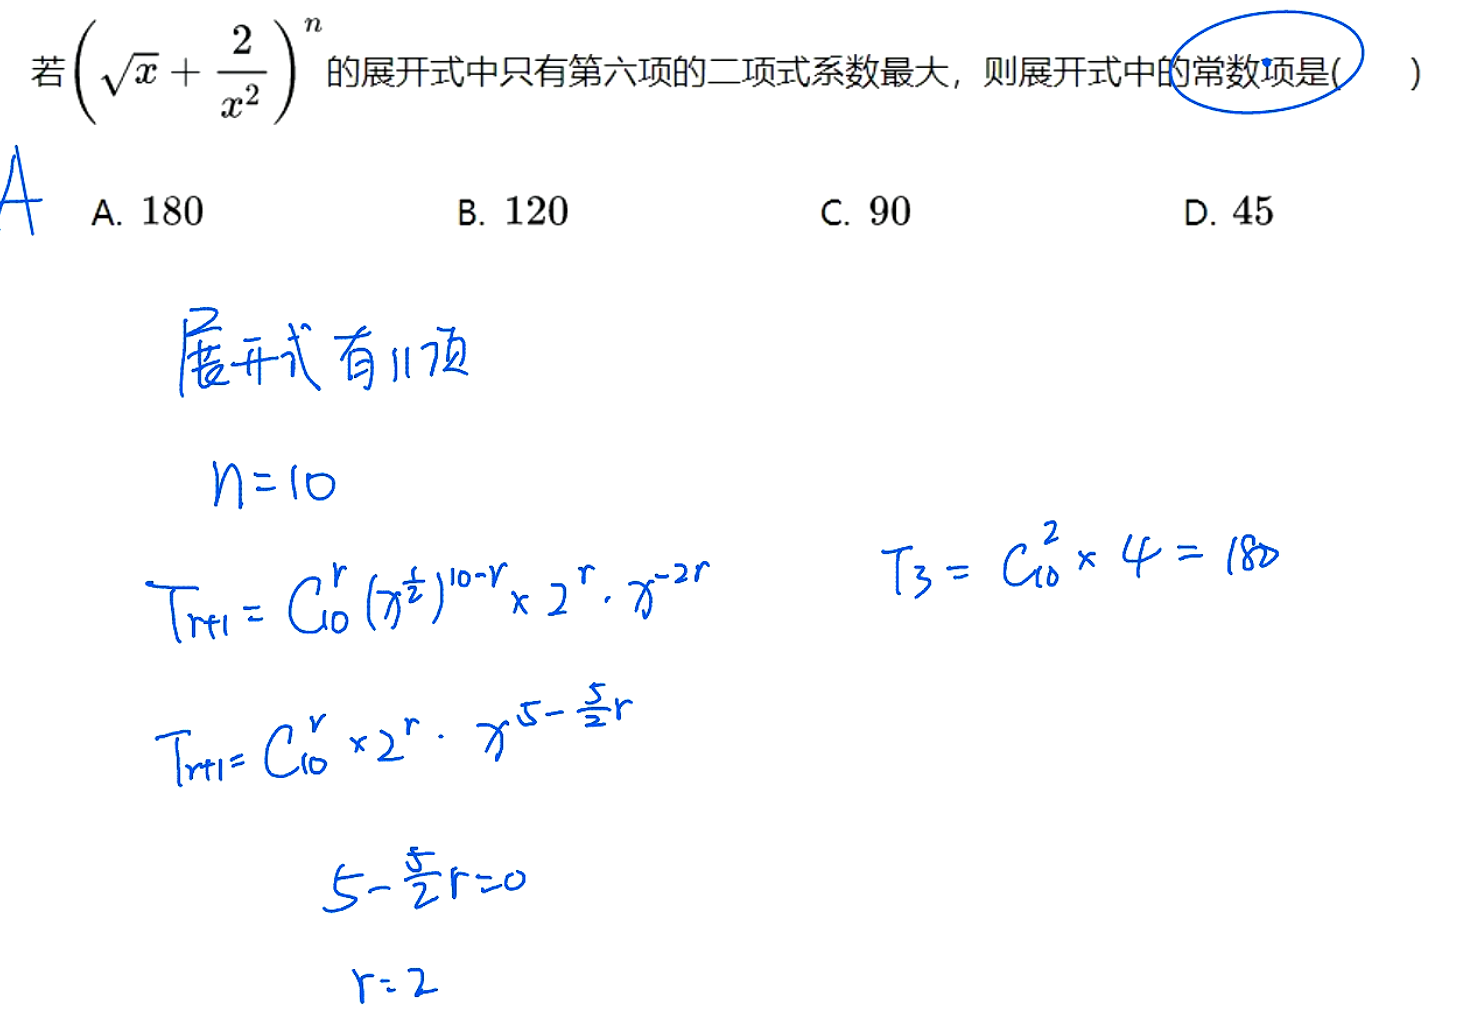 若(√x + 2/x²)ⁿ的展开式中只有第六项的二项式系数最大，则展开式中的常数项是(　　)
A
A. 180 B. 120 C. 90 D. 45
展开式有11项
n=10
T_{r+1} = C_{10}^{r} (x^{1/2})^{10-r} × 2^r · x^{-2r}
T_{r+1} = C_{10}^{r} × 2^r · x^{5-5/2 r}
5-5/2 r=0
r=2
T_3 = C_{10}^{2} × 4 = 180